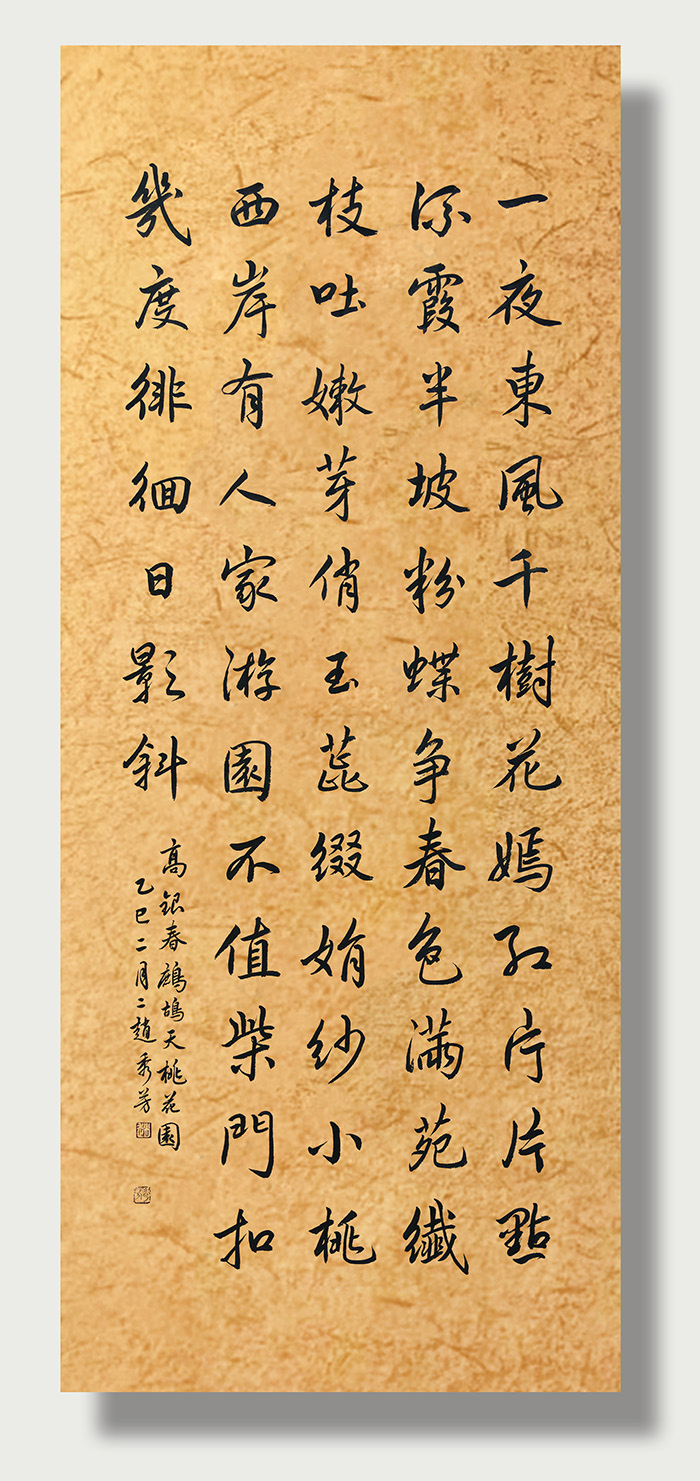 一夜東風千樹花嫣紅片片點
流霞半坡粉蝶争春色滿苑纖
枝吐嫩芽俏玉蕋綴娟紗小桃
西岸有人家游園不值柴門扣
幾度徘徊日影斜
高銀春鷓鴣天桃花園
乙巳二月二趙秀芳